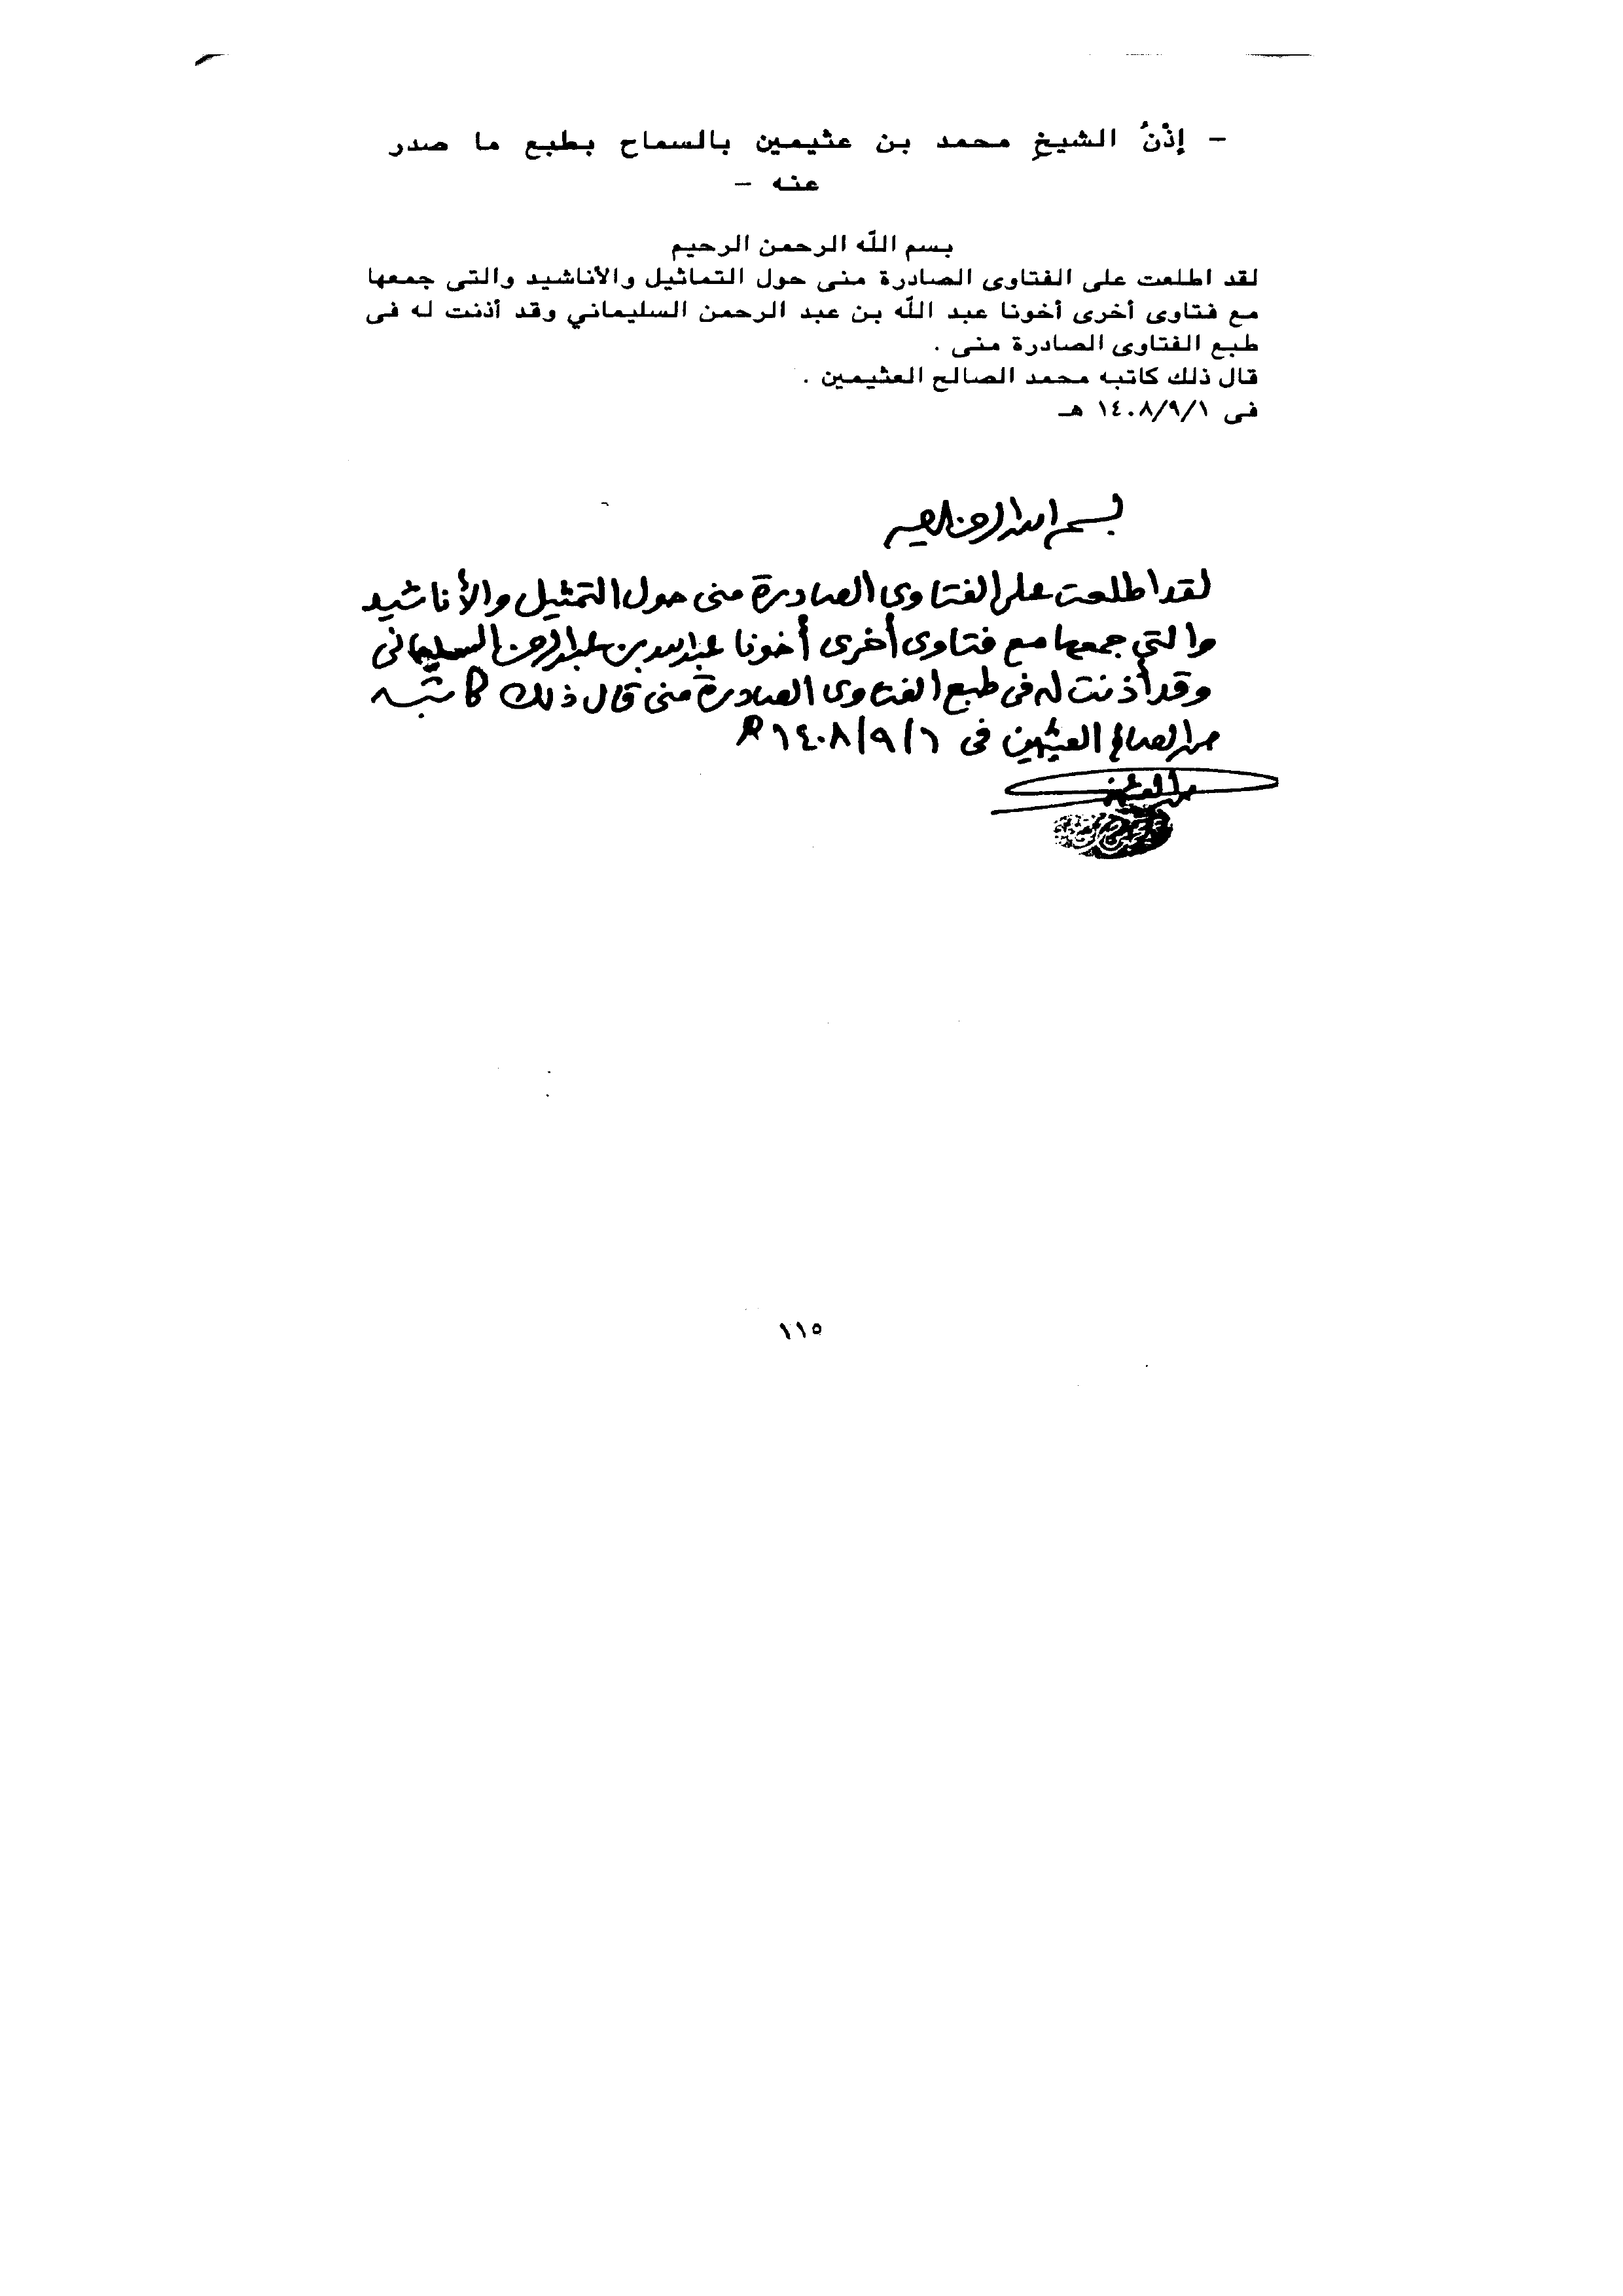 - إذْنُ الشيخِ محمد بن عثيمين بالسماح بطبع ما صدر
عنه -
بسم اللّه الرحمن الرحيم
لقد اطلعت على الفتاوى الصادرة منى حول التماثيل والأناشيد والتى جمعها
مع فتاوى أخرى أخونا عبد اللّه بن عبد الرحمن السليماني وقد أذنت له فى
طبع الفتاوى الصادرة منى .
قال ذلك كاتبه محمد الصالح العثيمين .
فى ١٤٠٨/٩/١ هـ
بسم الله الرحمن الرحيم
لقد اطلعت على الفتاوى الصادرة منى حول التمثيل والأناشيد
والتي جمعها مع فتاوى أخرى أخونا عبدالله بن عبدالرحمن السليمانى
وقد أذنت له فى طبع الفتاوى الصادرة منى قال ذلك كاتبه
محمد الصالح العثيمين فى ١٤٠٨/٩/٦ هـ
١١٥